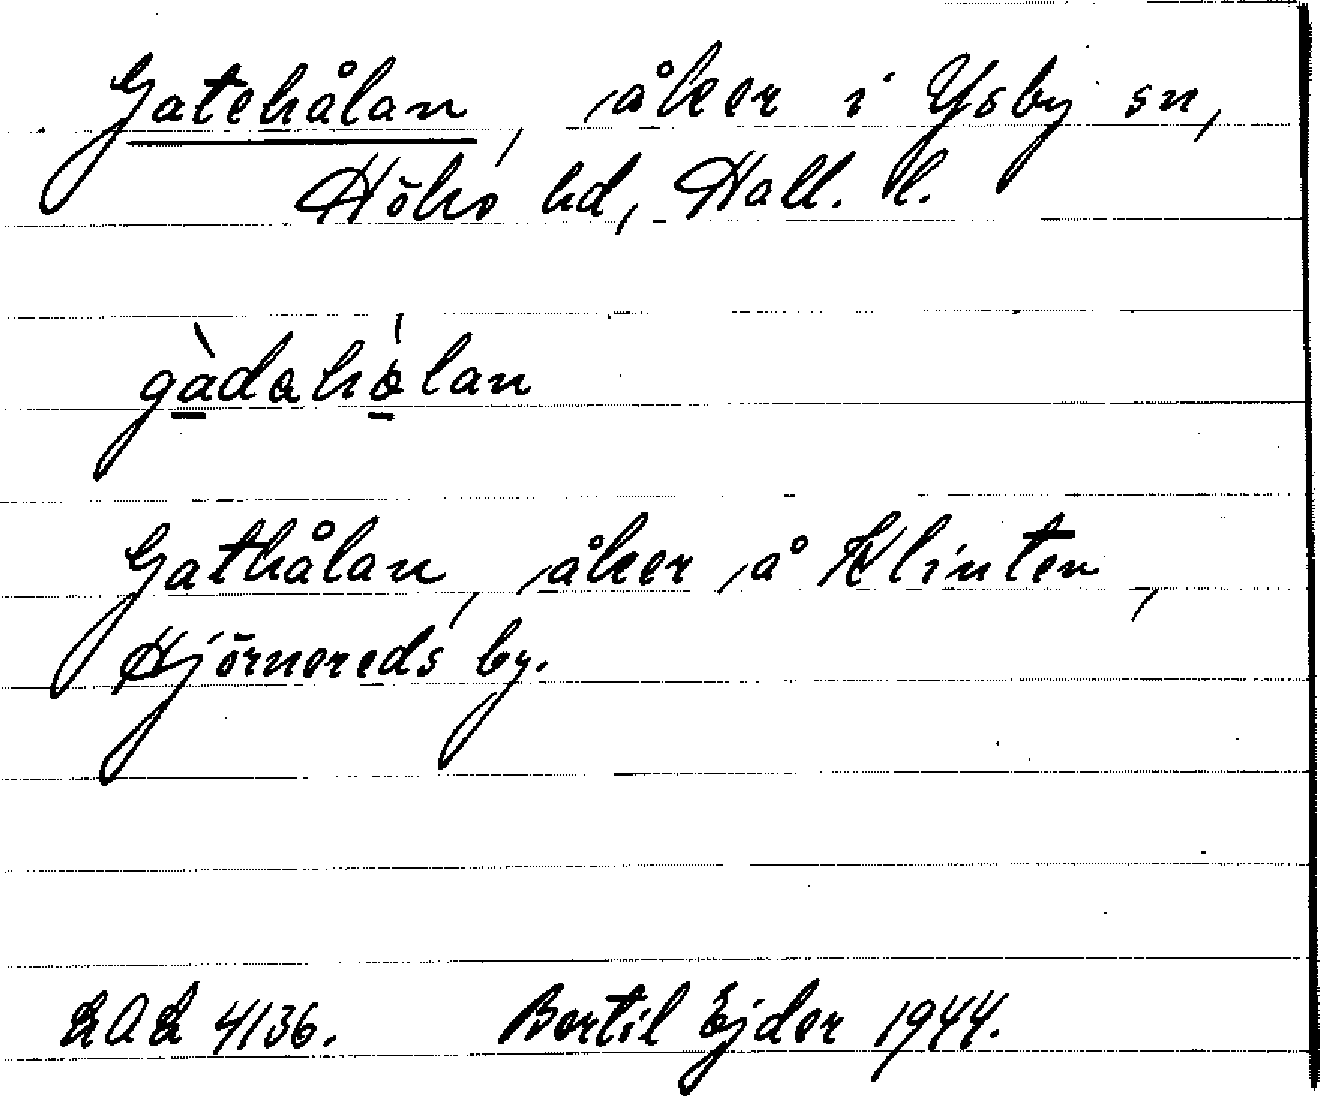 Gatehålan, åker i Ysby sn,
Höks hd, Hall. l.
gàdahòlan
Gathålan, åker å Klinten,
Hjörnereds by.
LAL 4136. Bertil Ejder 1944.